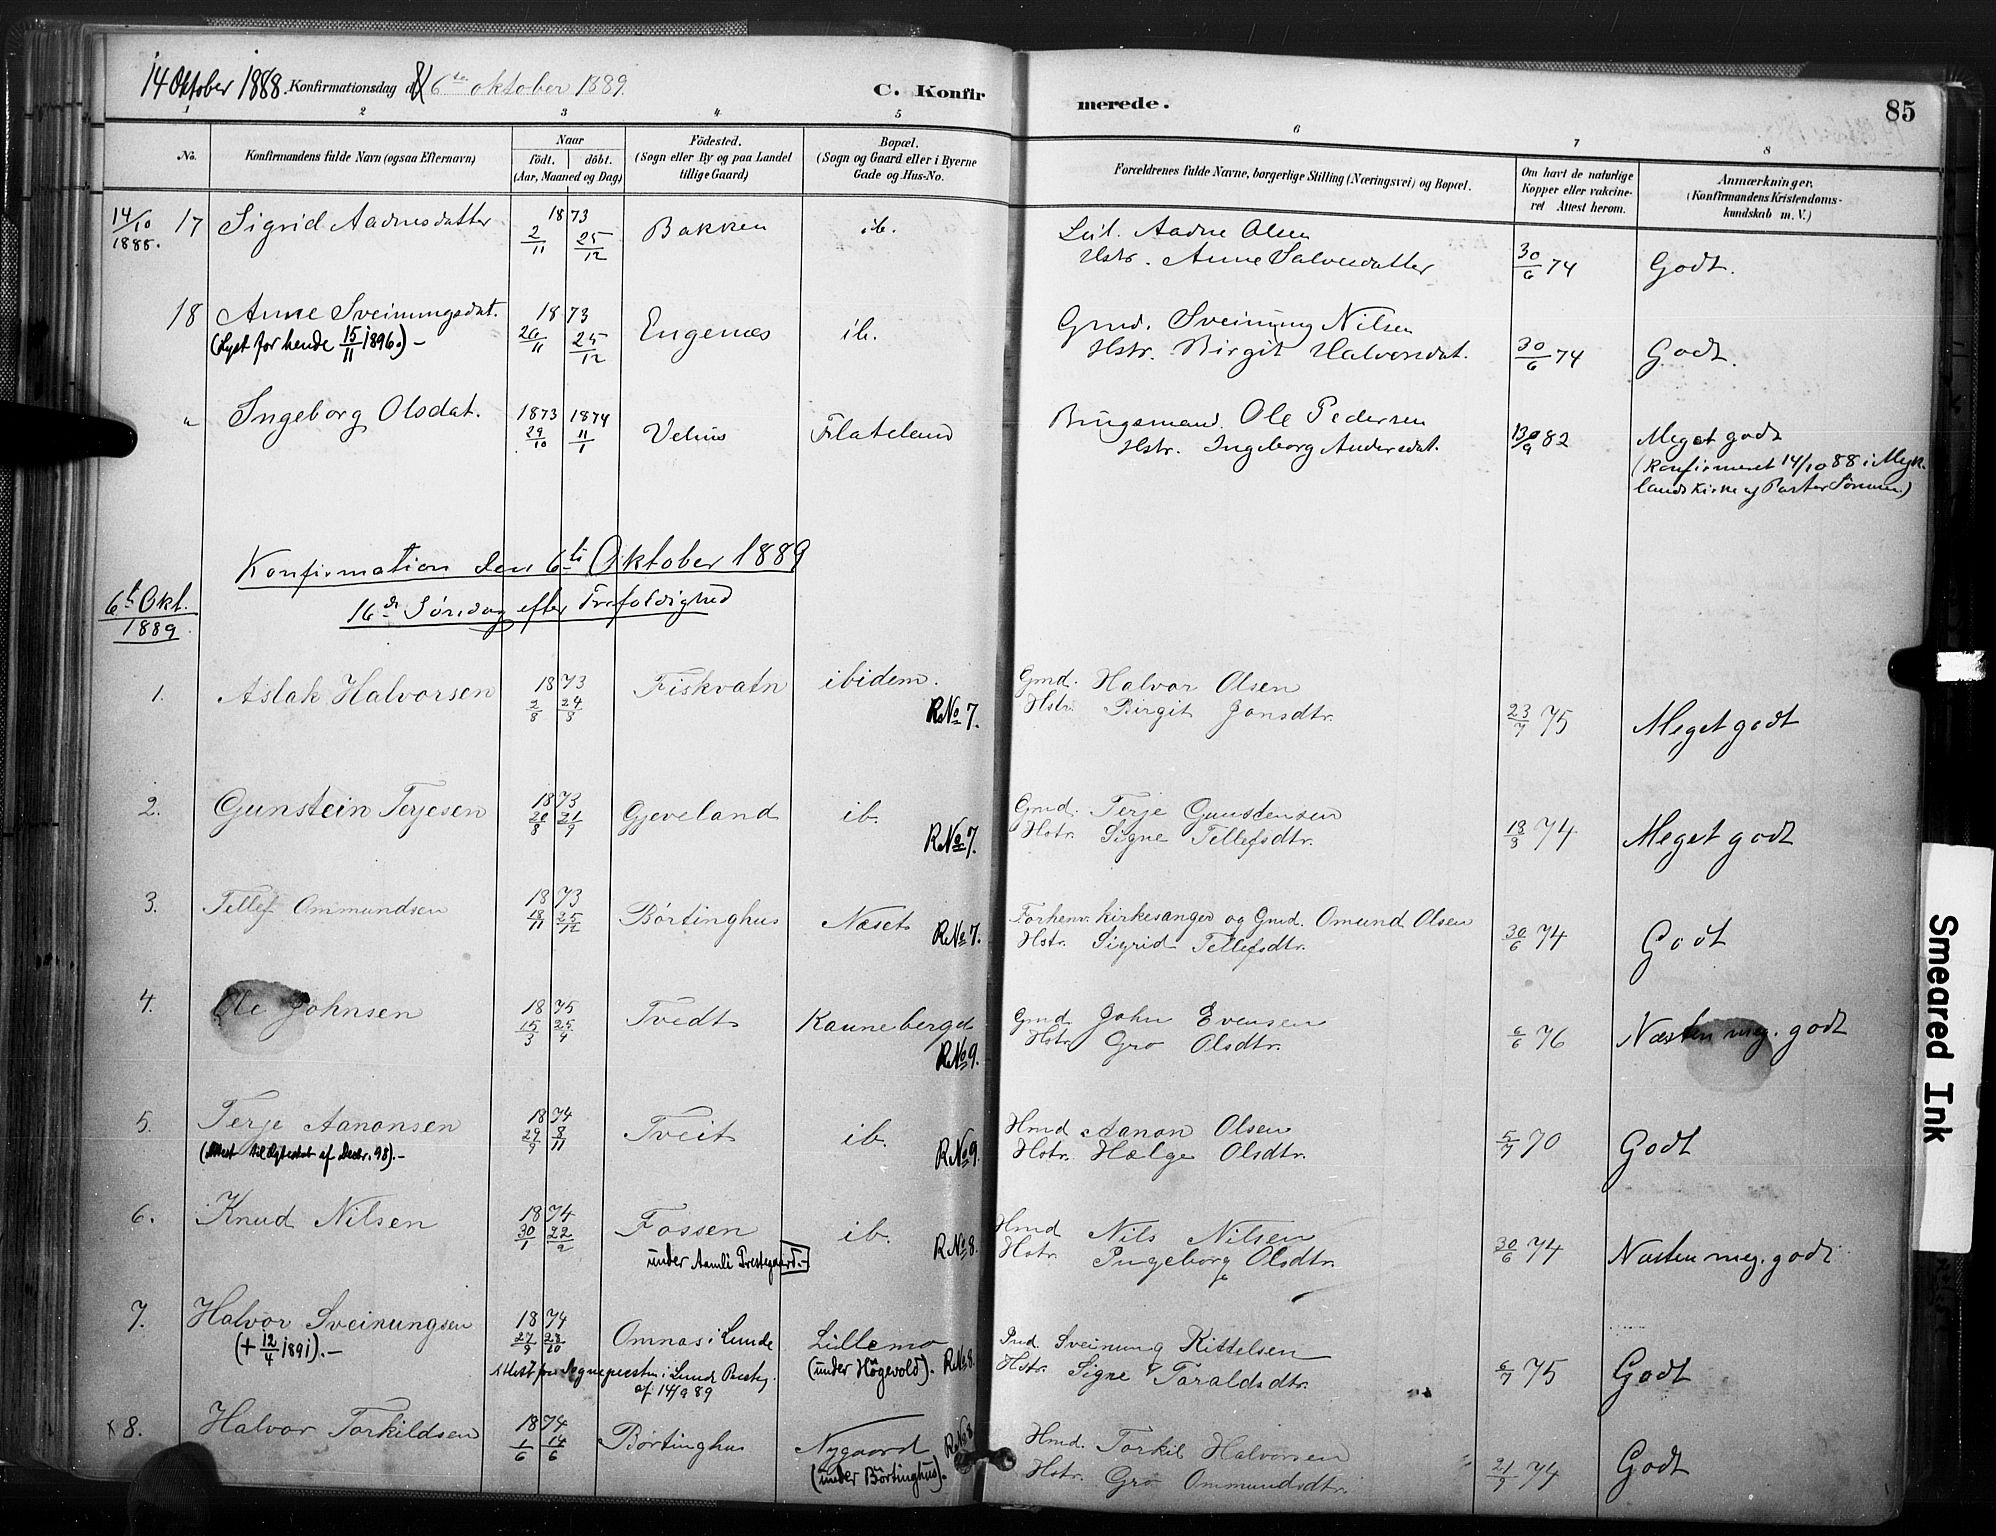 14 Oktober 1888. Konfirmationsdag d. 6te oktober 1889.
C. Konfirmerede.
85
1 2 3 4 5 6 7 8
No.
Konfirmandens fulde Navn (ogsaa Efternavn)
Naar
födt. döbt.
(Aar, Maaned og Dag)
Födested.
(Sogn eller By og paa Landet
tillige Gaard)
Bopæl.
(Sogn og Gaard eller i Byerne
Gade og Hus-No.
Forældrenes fulde Navne, borgerlige Stilling (Næringsvei) og Bopæl.
Om havt de naturlige
Kopper eller vakcine-
ret Attest herom.
Anmærkninger.
(Konfirmandens Kristendoms-
kundskab m. V.)
14/10 1888. 17 Sigrid Aadnesdatter 1873 2/11 25/12 Bakken ib. Aadne Olsen
Hstr. Anne Salvesdatter 30/6 74 Godt.
18 Anne Sveinungsdat. 1873 26/11 25/12 Engenæs ib. Gmd. Sveinung Nilsen
(Lyst for hende 15/11 1896.) -
Hstr. Birgit Halvorsdat. 30/6 74 Godt.
" Ingeborg Olsdat. 1873 29/10 1874 11/1 Flateland Brugsmand. Ole Pedersen
Hstr. Ingeborg Andersdat. 82 Meget godt
(Konfirmeret 14/10 88 i Myk-
lands Kirke af Pastor)
Konfirmation den 6te Oktober 1889
6te Okt. 1889
16de Søndag efter Trefoldighed
1. Aslak Halvorsen 1873 2/8 24/8 Fiskvatn ibidem. Gmd. Halvor Olsen
R.No 7. Hstr. Birgit Jonsdtr. 23/7 75 Meget godt
2. Gunstein Terjesen 1873 20/8 21/9 Gjeveland ib. Gmd. Terje Gunstensen
R.No 7. Hstr. Signe Tellefsdtr. 18/8 74 Meget godt
3. Tellef Ommundsen 1873 18/11 25/12 Børtinghus Næset Forhenv. kirkesanger og Gmd. Omund Olsen
R.No 7. Hstr. Sigrid Tellefsdtr. 30/6 74 Godt
4. Ole Johnsen 1875 15/3 25/4 Tvedt Kauneberget Gmd. John Evensen
R.No 9. Hstr. Gro Olsdtr. 6/6 76 Næsten meg. godt
5. Terje Aanonsen 1874 29/9 8/11 Tveit ib. Hmd Aanon Olsen
(Attest til Ægteskab af Decbr. 98). -
R.No 9. Hstr. Hælge Olsdtr. 5/7 70 Godt
6. Knud Nilsen 1874 30/1 22/2 Fossen ib. Hmd Nils Nilsen
under Aamli Prestegaard. -
R.No 8. Hstr. Ingeborg Olsdtr. 30/6 74 Næsten meg. godt
7. Halvor Sveinungsen 1874 27/9 28/10 Omnas i Lunde Lillemo Sveinung Kittelsen
(+ 12/4 1891). -
(under Högevold). R.No 8. Hstr. Signe Taraldsdtr. 6/7 75 Godt
Attest fra Sognepresten i Lunde Presteg.
af 14/9 89
x 8. Halvor Torkildsen 1874 1/6 14/6 Børtinghus Nygaard Hmd. Torkil Halvorsen
R.No 8.
(under Børtinghus). Hstr. Gro Ommundsdtr. 21/7 74 Godt
Smeared Ink